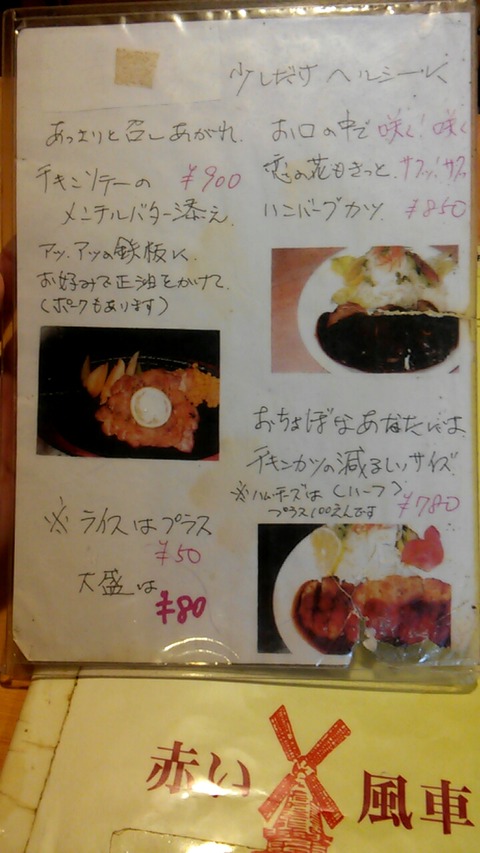 少しだけ ヘルシーに
あっさりと召しあがれ
チキンソテーの ¥900
メンテルバター添え
アツ、アツの鉄板に
お好みで正油をかけて
(ポークもあります)
※ ライスはプラス
¥50
大盛は
¥80
お口の中で 咲く! 咲く
恋の花もきっと サクッ! サクッ
ハンバーグカツ ¥850
おちょぼなあなたには
チキンカツの減るしいサイズ
(ハーフ)
※ハムチーズは
プラス100えんです
¥780
赤い風車